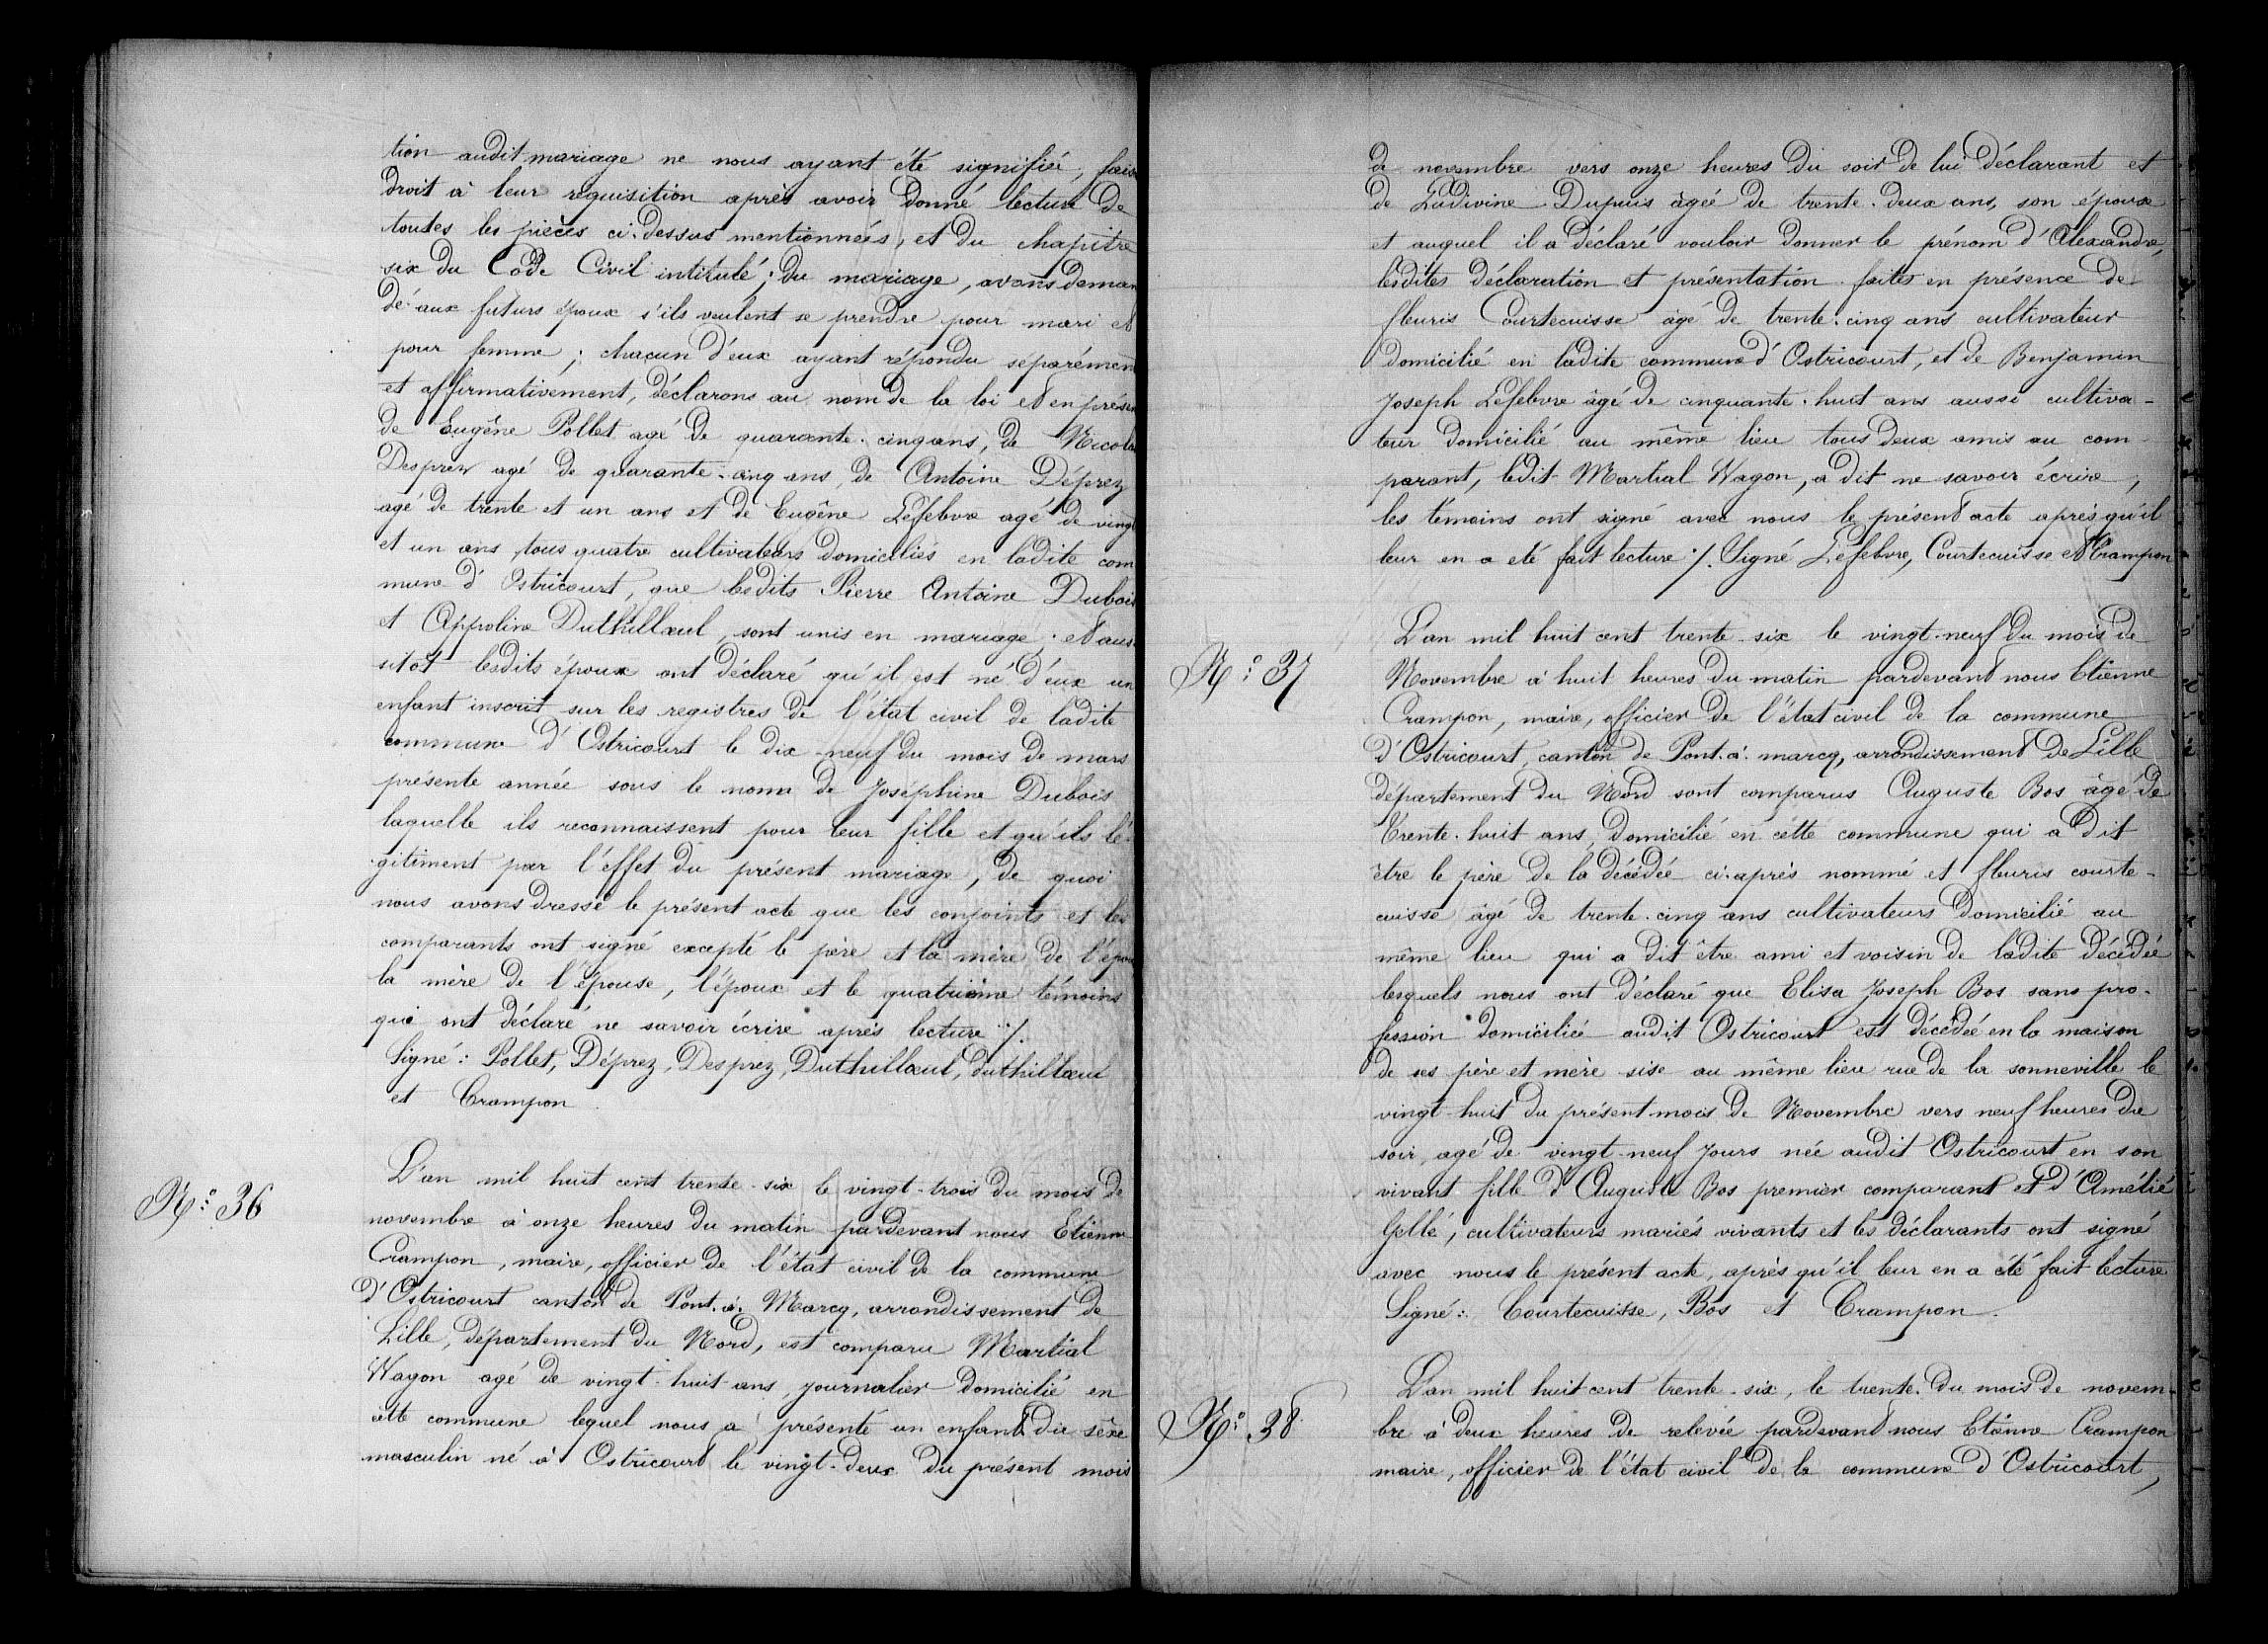 tion audit mariage ne nous ayant été signifiée, fais
droit à leur réquisition après avoir donné lecture de
toutes les pièces ci-dessus mentionnées, et du chapitre
six du Code Civil intitulé ; du mariage, avons deman
dé aux futurs époux s'ils veulent se prendre pour mari et
pour femme ; chacun d'eux ayant répondu séparémen
et affirmativement, déclarons au nom de la loi et en présen
de Eugène Pollet agé de quarante-cinq ans, de Nicolas
Desprez agé de quarante-cinq ans, de Antoine Déprez
agé de trente et un ans et de Eugène Lefebvre agé de vingt
et un ans tous quatre cultivateurs domiciliés en ladite com
mune d'Ostricourt, que lesdits Pierre Antoine Dubois
et Appoline Duthillœul, sont unis en mariage, et aus
sitôt lesdits époux ont déclaré qu'il est né d'eux un
enfant inscrit sur les registres de l'état civil de ladite
commune d'Ostricourt le dix-neuf du mois de mars
présente année sous le nom de Joséphine Dubois
laquelle ils reconnaissent pour leur fille et qu'ils lé-
gitiment par l'effet du présent mariage, de quoi
nous avons dressé le présent acte que les conjoints et les
comparants ont signé excepté le père et la mère de l'épou
la mère de l'épouse, l'époux et le quatrième témoins
qui ont déclaré ne savoir écrire après lecture ./.
Signé : Pollet, Déprez, Desprez, Duthillœul, duthillœul
et Crampon
N° 36
L'an mil huit cent trente-six le vingt-trois du mois de
novembre à onze heures du matin pardevant nous Etienne
Crampon, maire, officier de l'état civil de la commune
d'Ostricourt canton de Pont-à-Marcq, arrondissement de
Lille, département du Nord, est comparu Martial
Wagon agé de vingt-huit ans, journalier domicilié en
cette commune lequel nous a présenté un enfant du sèxe
masculin né à Ostricourt le vingt-deux du présent mois
de novembre vers onze heures du soir de lui déclarant et
de Ludivine Dupuis âgée de trente-deux ans, son épouse
et auquel il a déclaré vouloir donner le prénom d'Alexandre,
lesdites déclaration et présentation faites en présence de
fleuris Courtecuisse âgé de trente-cinq ans cultivateur
domicilié en ladite commune d'Ostricourt, et de Benjamin
Joseph Lefebvre âgé de cinquante-huit ans aussi cultiva-
teur domicilié au même lieu tous deux amis au com-
parant, ledit Martial Wagon, a dit ne savoir écrire,
les témoins ont signé avec nous le présent acte après qu'il
leur en a eté fait lecture ./. Signé Lefebvre, Courtecuisse et Crampon
N° 37
L'an mil huit cent trente-six le vingt-neuf du mois de
Novembre à huit heures du matin pardevant nous Etienne
Crampon, maire, officier de l'état civil de la commune
d'Ostricourt, canton de Pont-à-marcq, arrondissement de Lille
département du Nord sont comparus Auguste Bos âgé de
trente-huit ans, domicilié en cette commune qui a dit
être le père de la décédée ci-après nommé et fleuris courte-
cuisse âgé de trente-cinq ans cultivateurs domicilié au
même lieu qui a dit être ami et voisin de ladite décédée
lesquels nous ont déclaré que Elisa Joseph Bos sans pro-
fession domiciliée audit Ostricourt est décédée en la maison
de ses père et mère sise au même lieu rue de la sonneville le
vingt-huit du présent mois de Novembre vers neuf heures du
soir, agé de vingt-neuf jours née audit Ostricourt en son
vivant fille d'Auguste Bos premier comparant et d'Amélie
Gellé, cultivateurs mariés vivants et les déclarants ont signé
avec nous le présent acte, après qu'il leur en a été fait lecture
Signé : Courtecuisse, Bos et Crampon.
N° 38
L'an mil huit cent trente-six, le trente du mois de novem-
bre à deux heures de relevée pardevant nous Etienne Crampon
maire, officier de l'état civil de la commune d'Ostricourt,